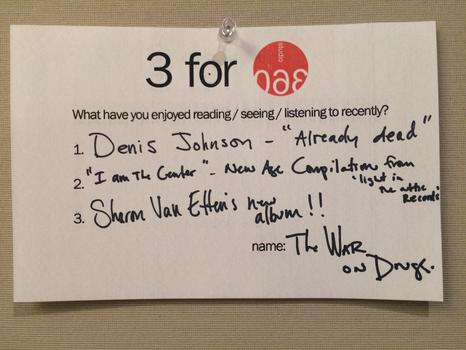 3 for studio 360
What have you enjoyed reading / seeing / listening to recently?
1. Denis Johnson - "Already dead"
2. "I am The Center" - New Age Compilation from
"light in
The attic
Records"
3. Sharon Van Etten's new
album!!
name: The WAR
ON DRUGS.